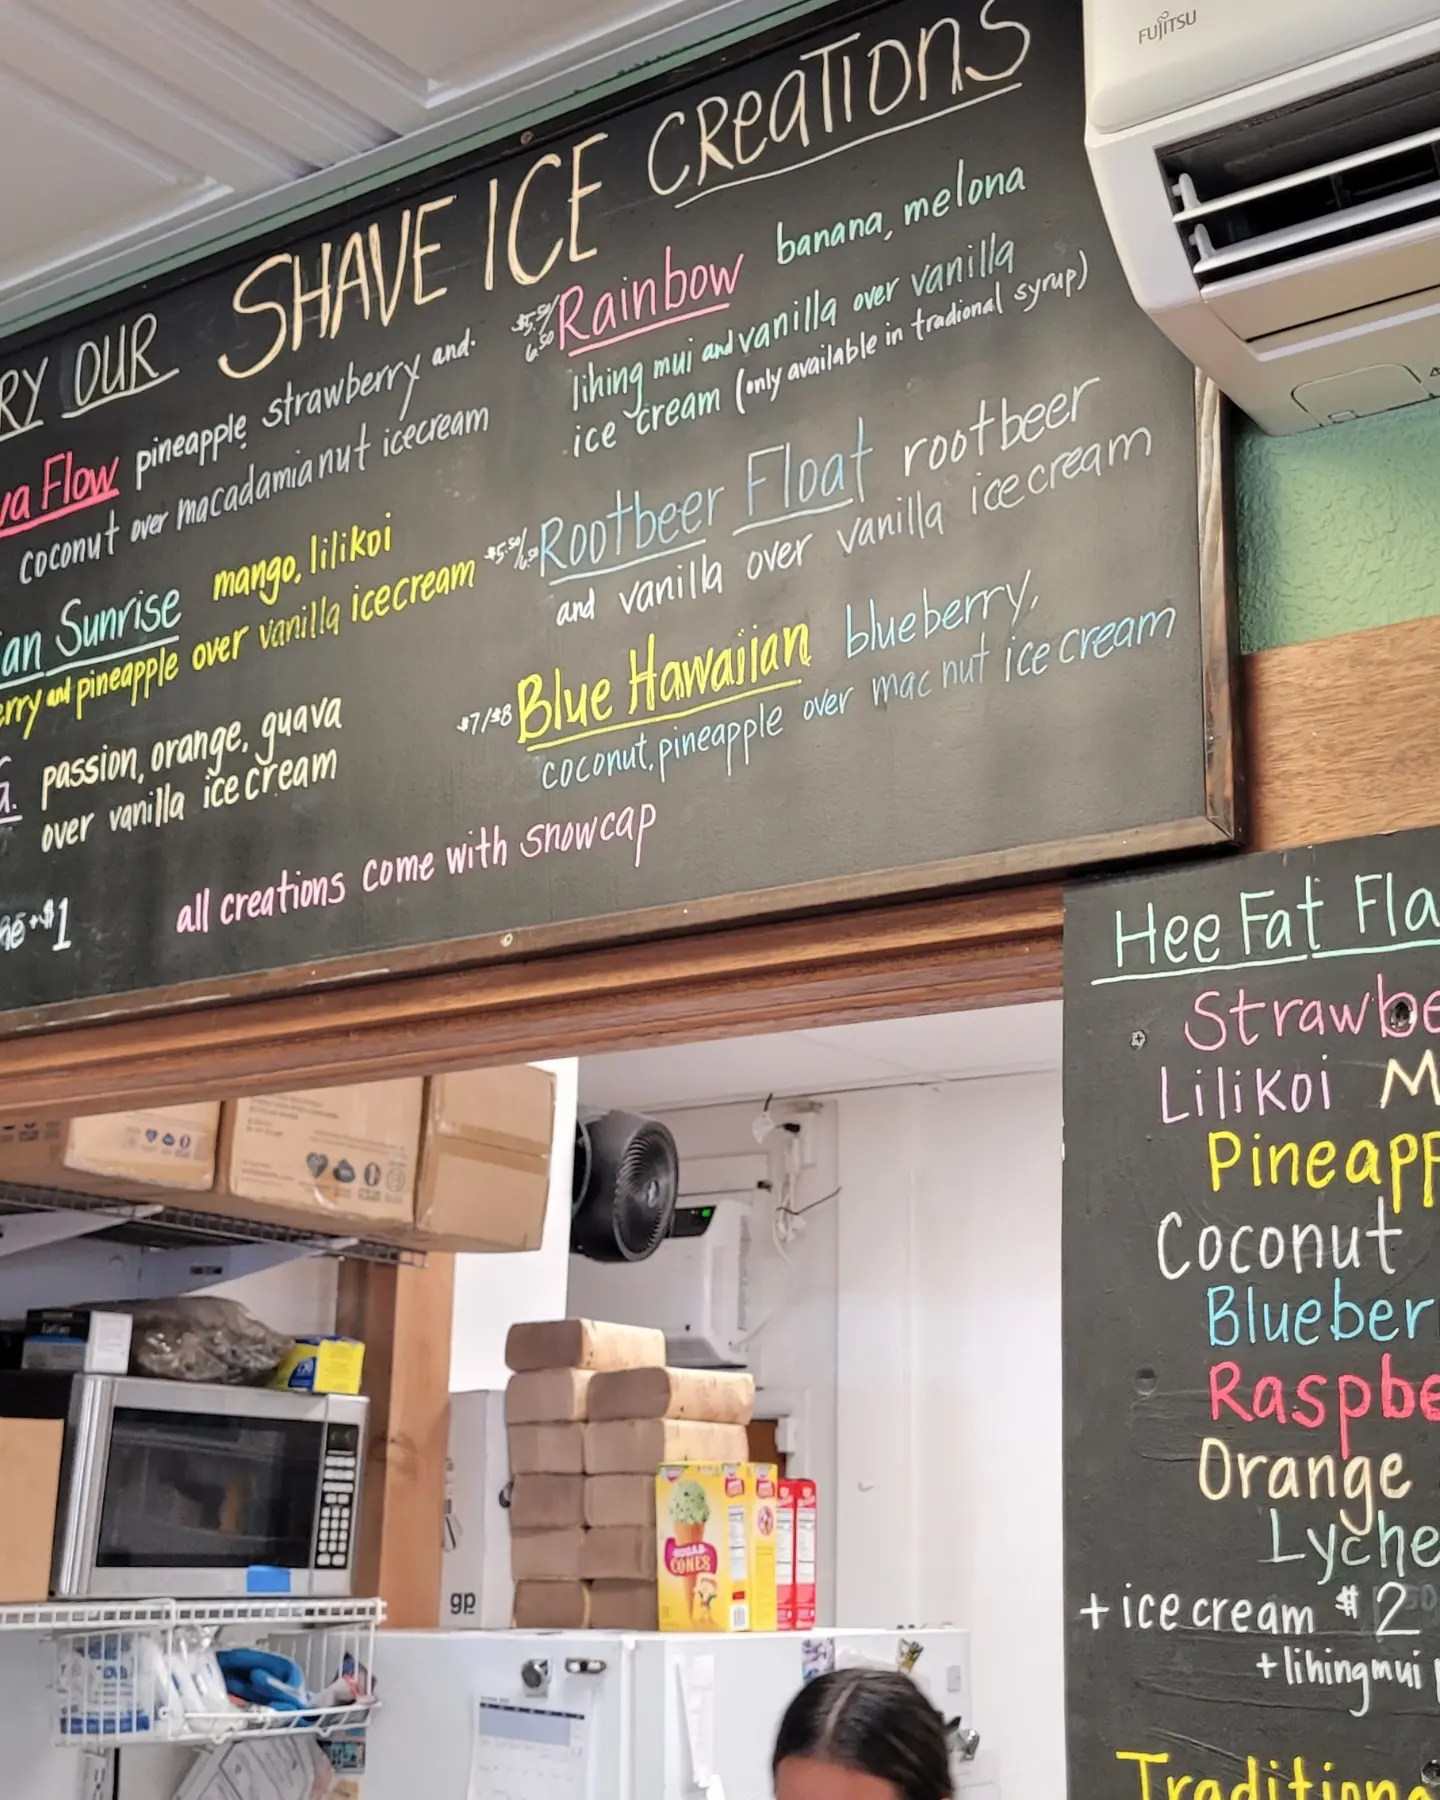 RY OUR SHAVE ICE CREATIONS
va Flow pineapple, strawberry and
coconut over macadamianut icecream
an Sunrise mango, lilikoi
erry and pineapple over vanilla icecream
passion, orange, guava
over vanilla ice cream
+$1
all creations come with snowcap
$5.50/6.50 Rainbow banana, melona
lihing mui and vanilla over vanilla
ice cream (only available in tradional syrup)
$5.50/6.50 Rootbeer Float rootbeer
and vanilla over vanilla icecream
$7/$8 Blue Hawaiian blueberry,
coconut, pineapple over mac nut ice cream
FUJITSU
Hee Fat Fla
Strawbe
Lilikoi M
Pineapp
Coconut
Blueber
Raspbe
Orange
Lyche
+ ice cream $2
+ lihingmui p
Traditiona
SUGAR
CONES
gp